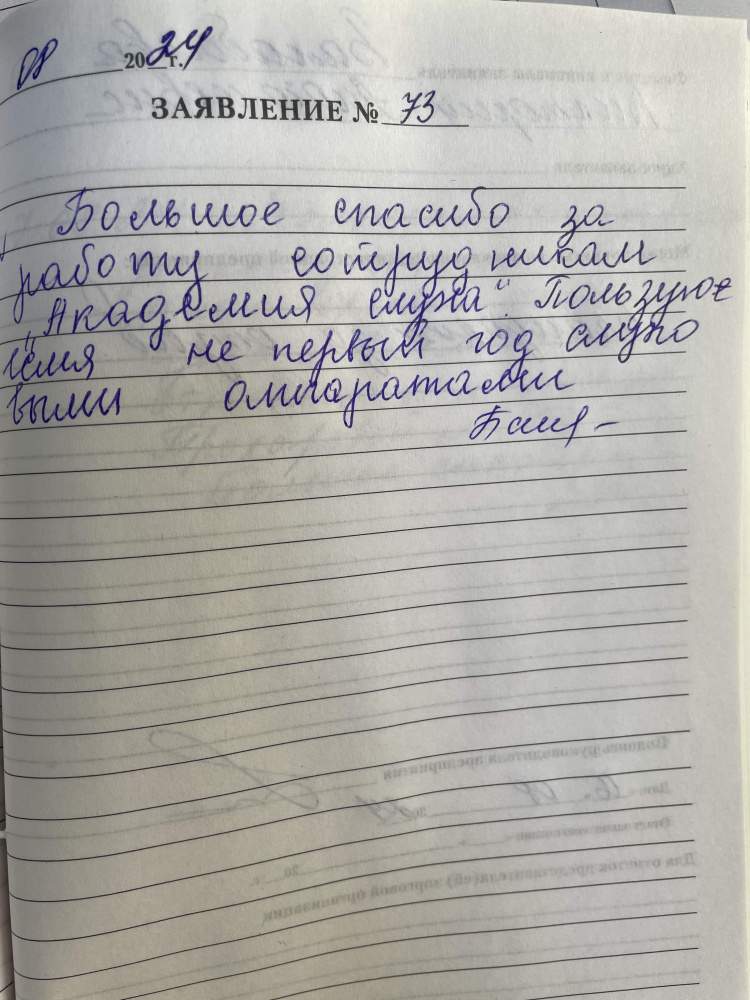 08 2024 г.
ЗАЯВЛЕНИЕ № 73
Большое спасибо за
работу сотрудникам
"Академия слуха". Пользуюсь
семья не первый год слухо
выми аппаратами